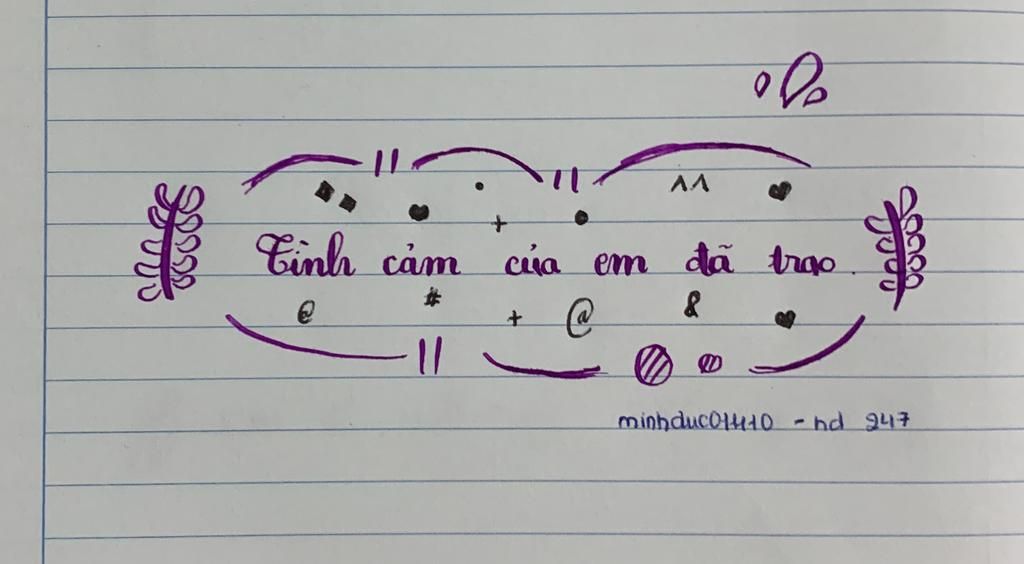 ^^
+
Tình cảm của em đã trao.
@ # + @ &
minhduc01410 - nd 247